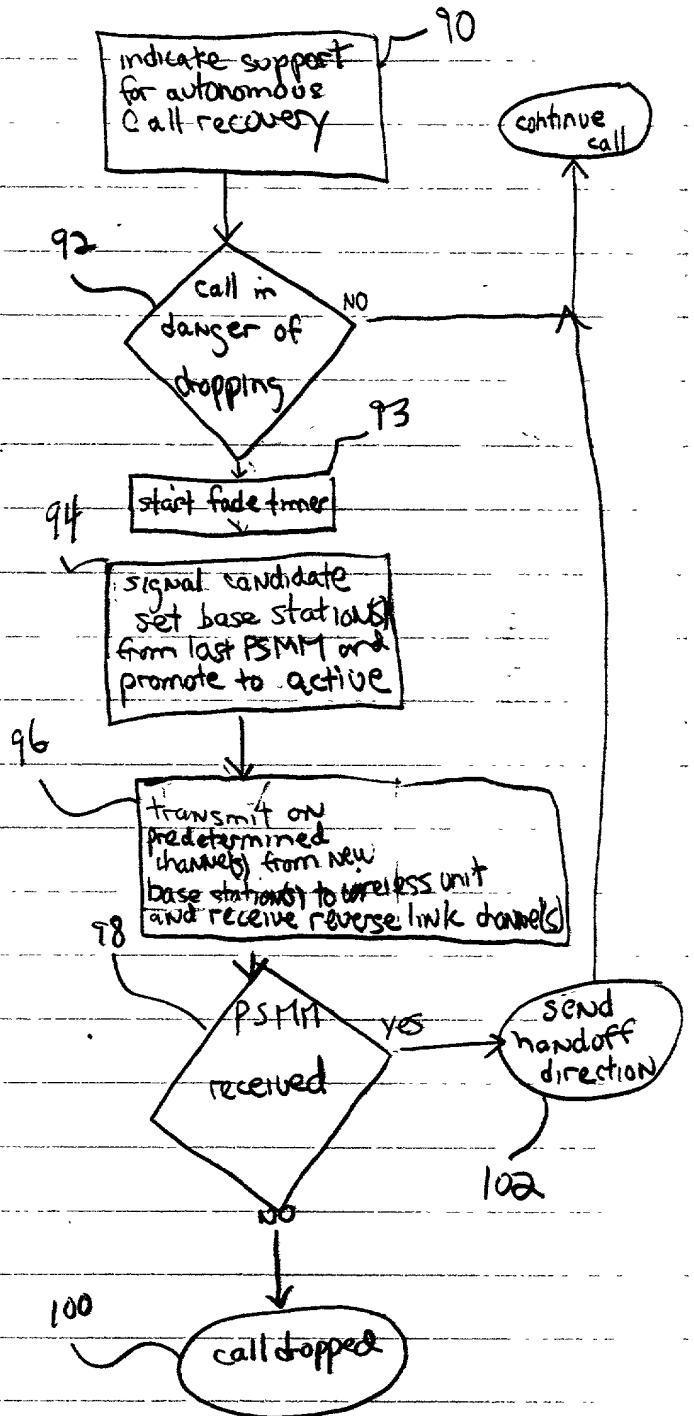 90
indicate support
for autonomous
Call recovery
continue
call
92
call in
danger of
dropping
NO
93
start fade timer
94
signal candidate
set base station(s)
from last PSMM and
promote to active
96
transmit on
predetermined
channel(s) from new
base station(s) to wireless unit
and receive reverse link channel(s)
98
PSMM
received
yes
send
handoff
direction
102
NO
100
call dropped